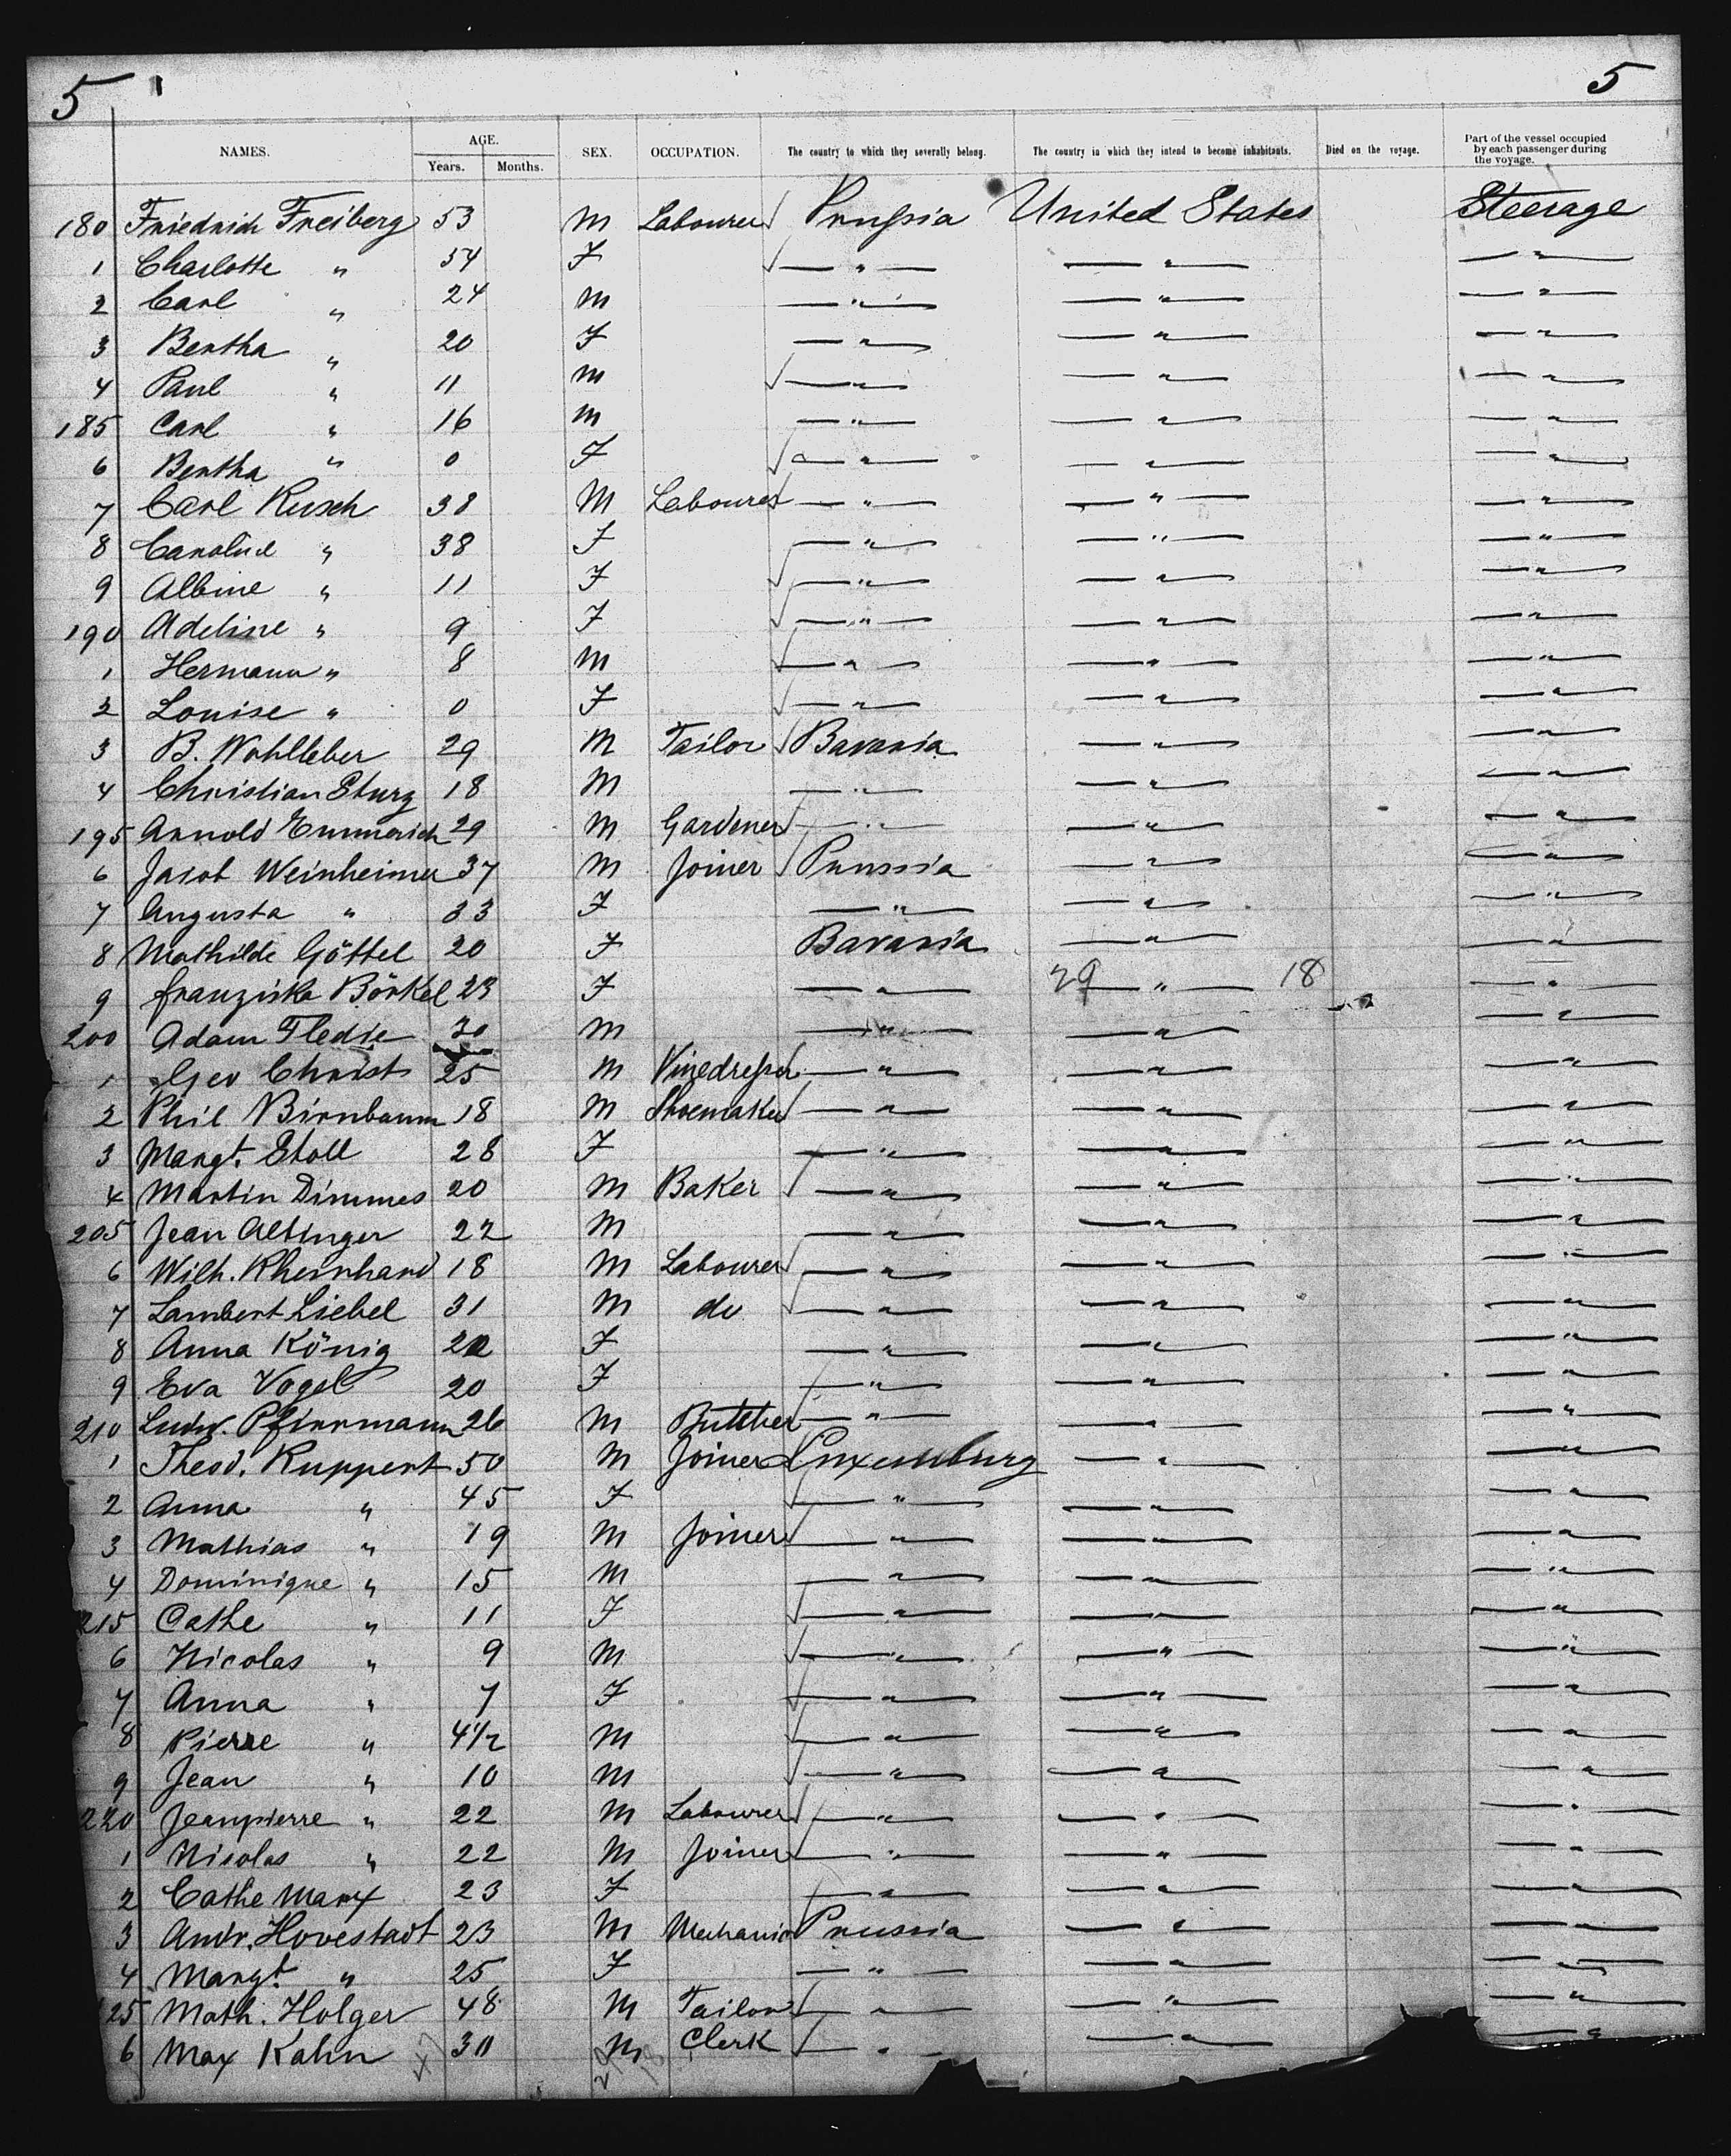 5 5
NAMES. AGE. Years. Months. SEX. OCCUPATION. The country to which they severally belong. The country in which they intend to become inhabitants. Died on the voyage. Part of the vessel occupied by each passenger during the voyage.
180 Friedrich Freiberg 53 M Labourer Prussia United States Steerage
1 Charlotte " 54 F " " "
2 Carl " 24 M " " "
3 Bertha " 20 F " " "
4 Paul " 11 M " " "
185 Carl " 16 M " " "
6 Bertha " 0 F " " "
7 Carl Rusch 38 M Labourer " " "
8 Caroline " 38 F " " "
9 Albine " 11 F " " "
190 Adeline " 9 F " " "
1 Hermann " 8 M " " "
2 Louise " 0 F " " "
3 B. Wohlleber 29 M Tailor Bavaria " "
4 Christian Sturz 18 M " " "
195 Arnold Emmerich 29 M Gardener " " "
6 Jacob Weinheimer 37 M Joiner Prussia " "
7 Augusta " 33 F " " "
8 Mathilde Göttel 20 F Bavaria " "
9 Franziska Börkel 23 F " 29 " 18 "
200 Adam 30 M " " "
1 Geo Christ 25 M Vinedresser " " "
2 Phil Birnbaum 18 M Shoemaker " " "
3 Margt. Stoll 28 F " " "
4 Martin Dimmes 20 M Baker " " "
205 Jean Altinger 22 M " " "
6 Wilh. Rheinhard 18 M Labourer " " "
7 Lambert Liebel 31 M do " " "
8 Anna König F " " "
9 Eva Vogel 20 F " " "
210 Ludw. Pfirrmann 26 M Butcher " " "
1 Theod. Ruppert 50 M Joiner Luxemburg " "
2 Anna " 45 F " " "
3 Mathias " 19 M Joiner " " "
4 Dominique " 15 M " " "
215 Cathe " 11 F " " "
6 Nicolas " 9 M " " "
7 Anna " 7 F " " "
8 Pierre " 4 1/2 M " " "
9 Jean " 10 M " " "
220 Jeanpierre " 22 M Labourer " " "
1 Nicolas " 22 M Joiner " " "
2 Cathe Marx 23 F " " "
3 Andr. Hovestadt 23 M Mechanic Prussia " "
4 Margt. " 25 F " " "
25 Math. Holger 48 M Tailor " " "
6 Max Kahn 30 M Clerk " " "